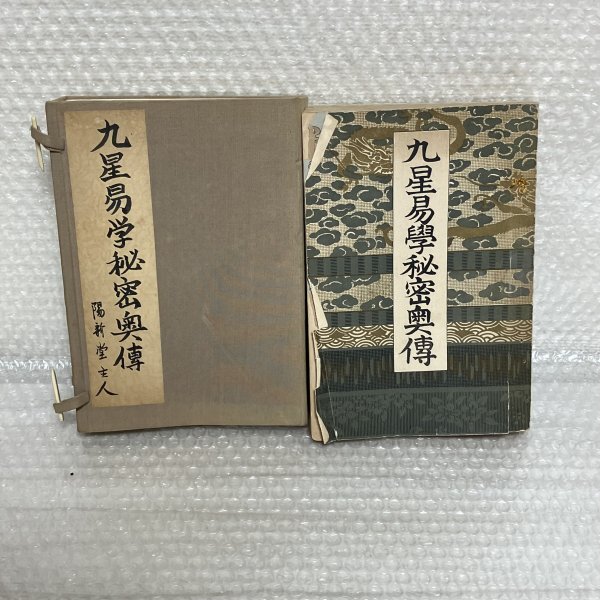 九星易学秘密奥傳
陽新堂主人
九星易學秘密奥傳